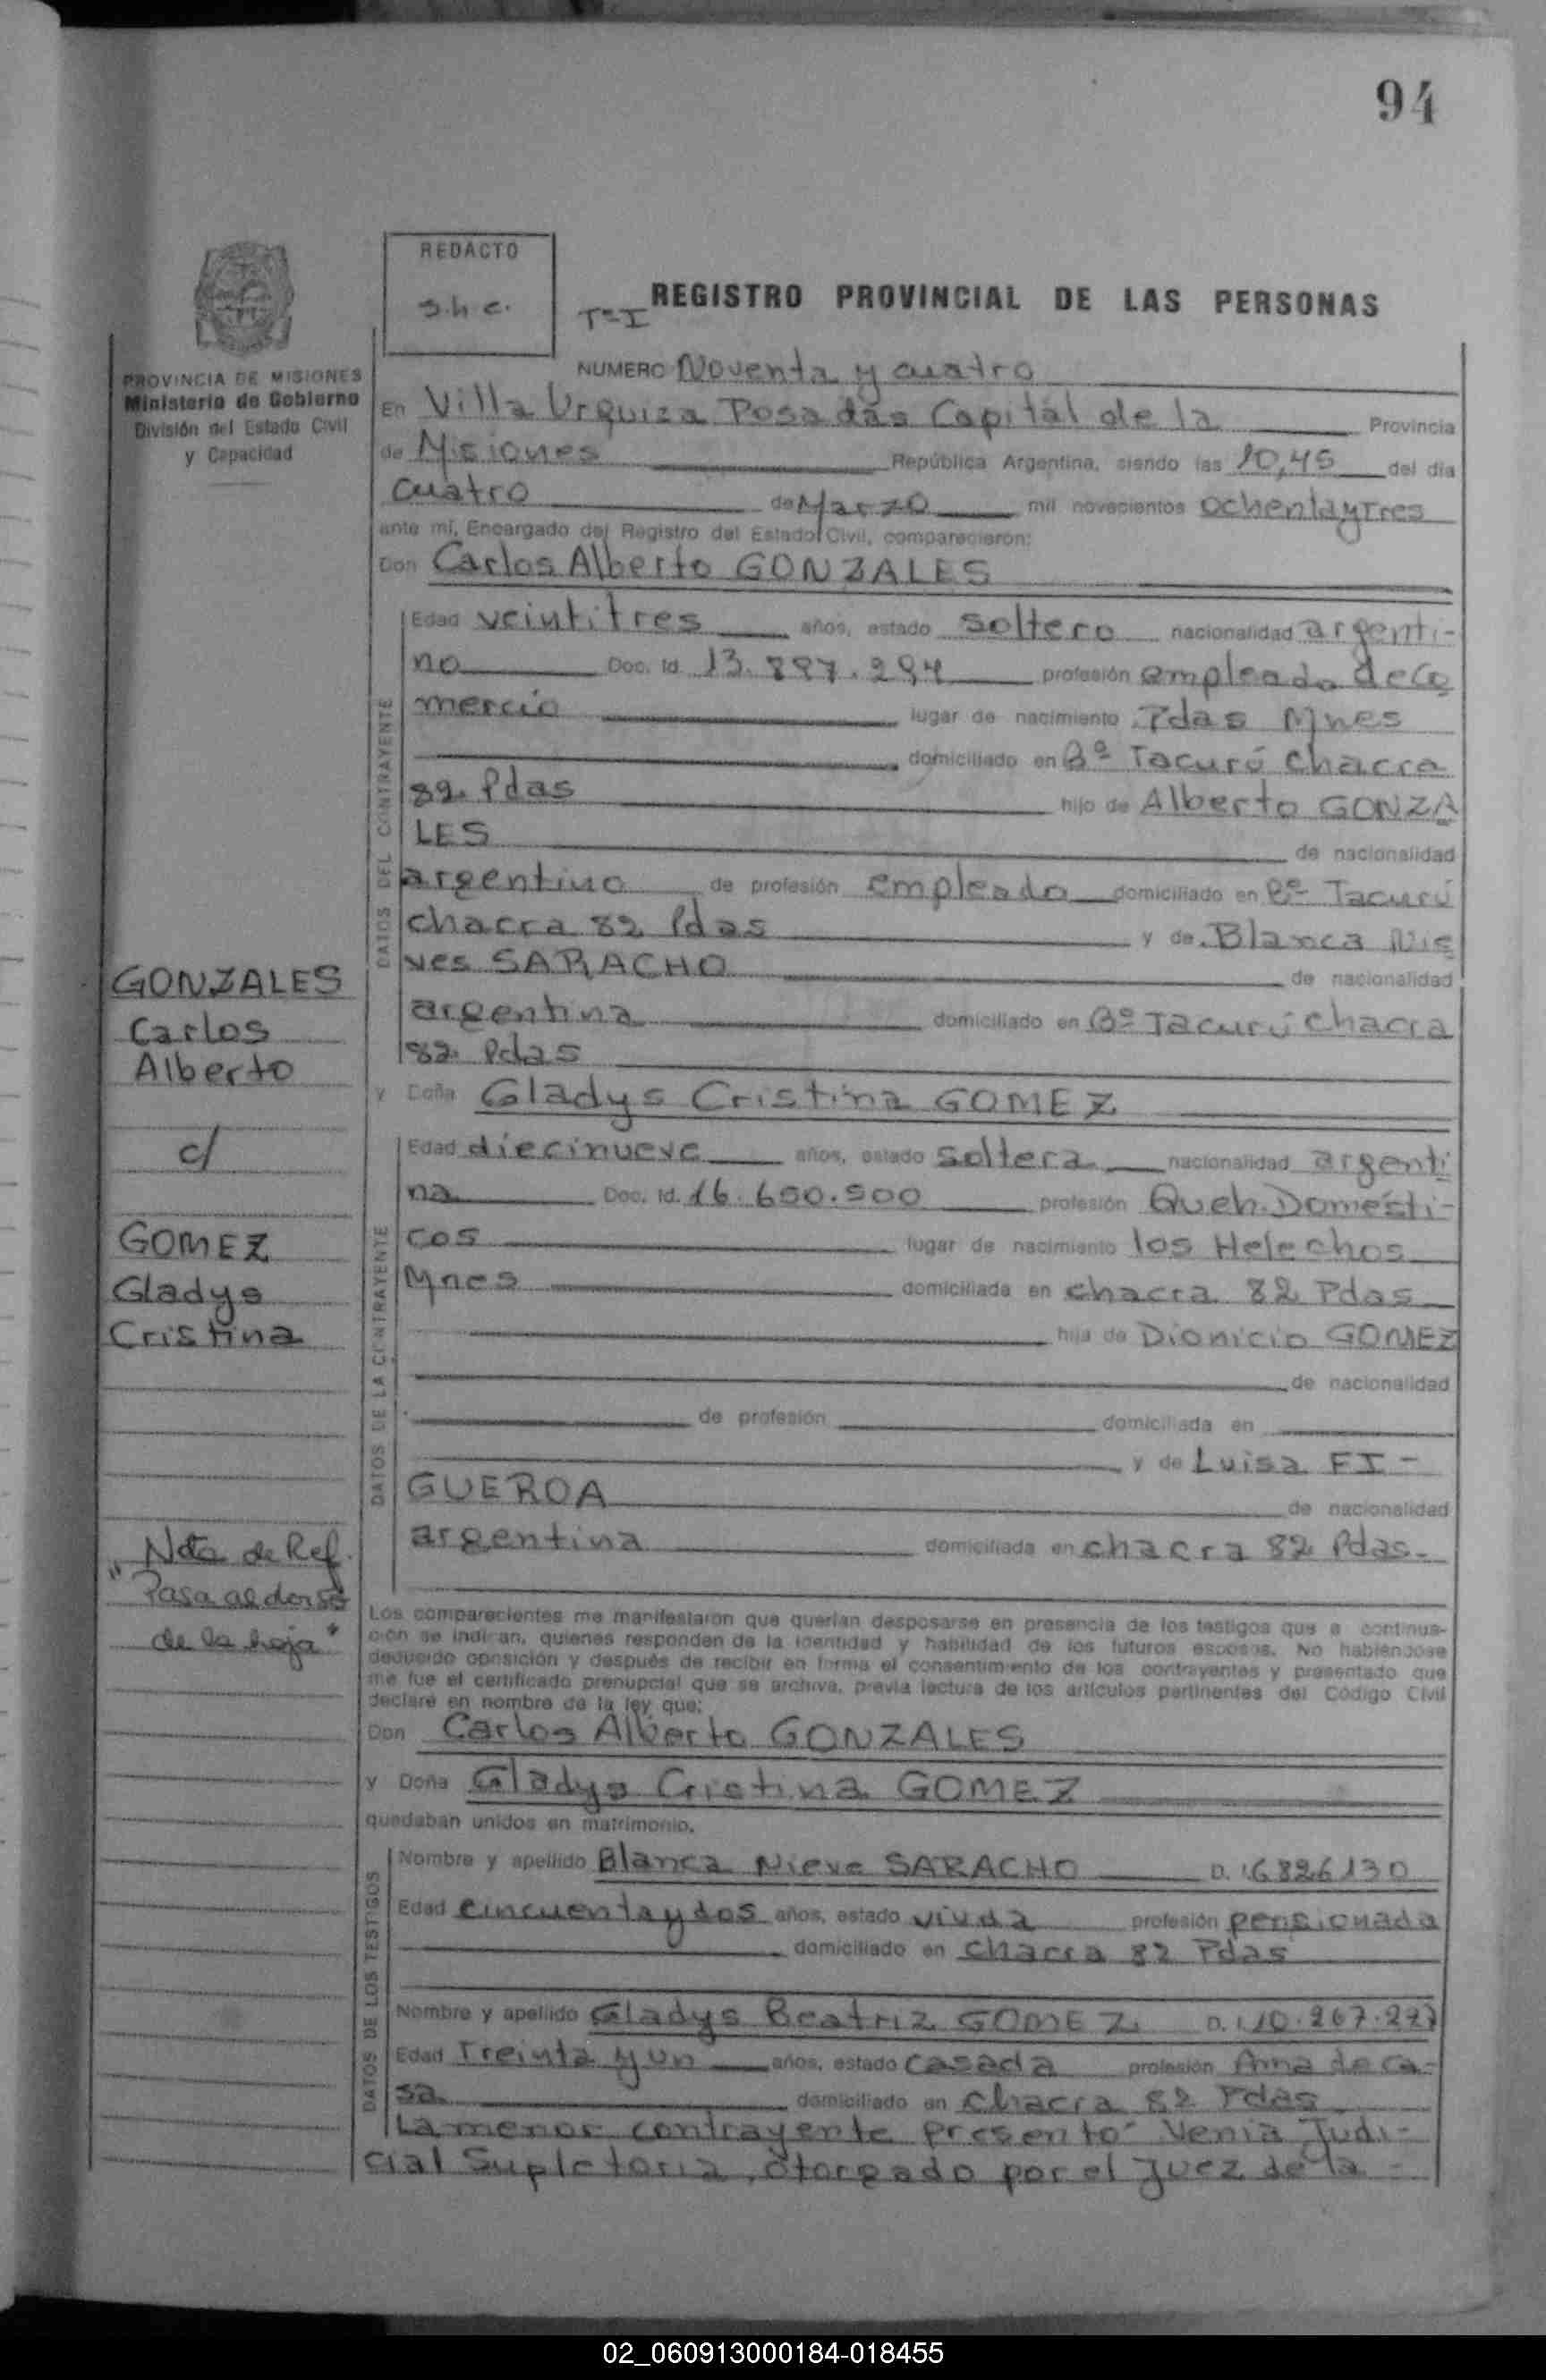 94
REDACTO
S.h c.
Tº=I
REGISTRO PROVINCIAL DE LAS PERSONAS
PROVINCIA DE MISIONES
Ministerio de Gobierno
División del Estado Civil
y Capacidad
NUMERO Noventa y cuatro
En Villa Urquiza Posadas Capital de la Provincia
de Misiones República Argentina, siendo las 10,45 del día
cuatro de Marzo mil novecientos ochentaytres
ante mí, Encargado del Registro del Estado Civil, comparecieron:
Don Carlos Alberto GONZALES
DATOS DEL CONTRAYENTE
Edad veintitres años, estado soltero nacionalidad argenti-
no Doc. Id. 13.897.294 profesión empleado deCo
mercio lugar de nacimiento Pdas Mnes
domiciliado en Bº Tacurú Chacra
82 Pdas hijo de Alberto GONZA
LES de nacionalidad
argentino de profesión empleado domiciliado en Bº Tacurú
chacra 82 Pdas y de Blanca Nie
ves SARACHO de nacionalidad
argentina domiciliado en Bº Tacurú chacra
82 Pdas
GONZALES
Carlos
Alberto
c/
GOMEZ
Gladys
Cristina
y Doña Gladys Cristina GOMEZ
DATOS DE LA CONTRAYENTE
Edad diecinueve años, estado soltera nacionalidad argenti
na Doc. Id. 16.650.500 profesión Queh. Domésti-
cos lugar de nacimiento los Helechos
Mnes domiciliada en chacra 82 Pdas
hija de Dionicio GOMEZ
de nacionalidad
de profesión domiciliada en
y de Luisa FI-
GUEROA de nacionalidad
argentina domiciliada en chacra 82 Pdas-
Nota de Ref.
"Pasa al dorso
de la hoja"
Los comparecientes me manifestaron que querían desposarse en presencia de los testigos que a continua-
ción se indican, quienes responden de la identidad y habilidad de los futuros esposos. No habiéndose
deducido oposición y después de recibir en forma el consentimiento de los contrayentes y presentado que
me fue el certificado prenupcial que se archiva, previa lectura de los artículos pertinentes del Código Civil
declaré en nombre de la ley que:
Don Carlos Alberto GONZALES
y Doña Gladys Cristina GOMEZ
quedaban unidos en matrimonio.
DATOS DE LOS TESTIGOS
Nombre y apellido Blanca Nieve SARACHO D. I. 6826130
Edad cincuentaydos años, estado viuda profesión pensionada
domiciliado en chacra 82 Pdas
Nombre y apellido Gladys Beatriz GOMEZ D. I. 10.267.297
Edad Treinta y un años, estado casada profesión Ama de ca-
sa domiciliado en chacra 82 Pdas
La menor contrayente presentó Venia Judi-
cial Supletoria, otorgado por el Juez de la -
02_060913000184-018455